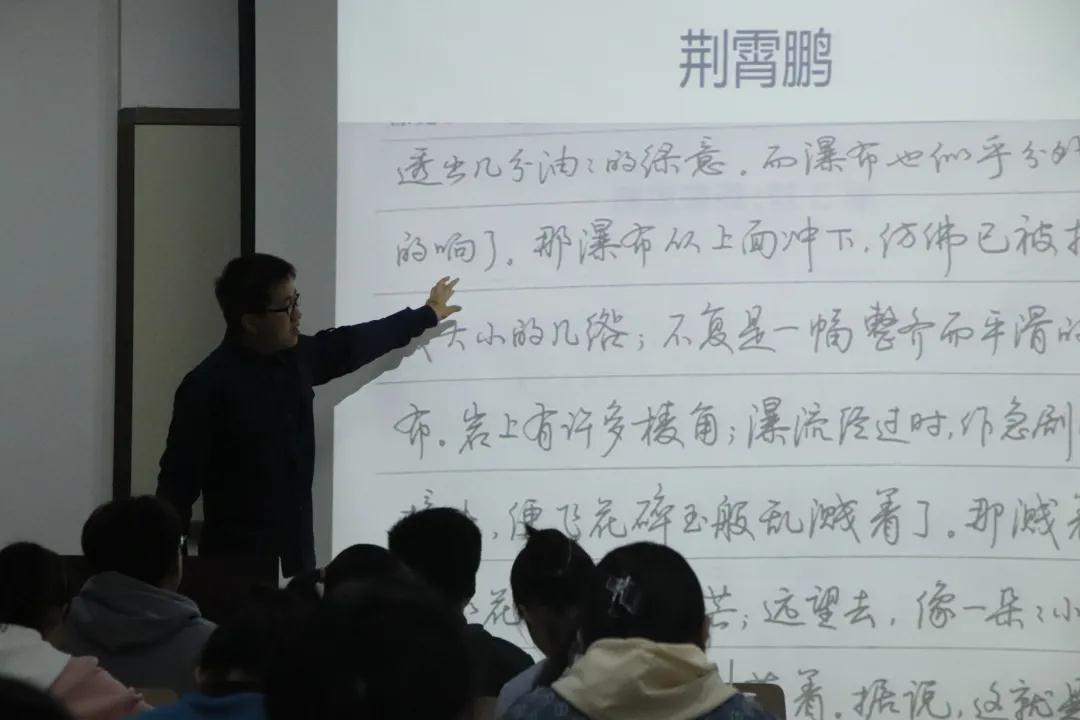 荆霄鹏
透出几分油々的绿意。而瀑布也似乎分外
的响了。那瀑布从上面冲下，仿佛已被
大小的几绺；不复是一幅整齐而平滑的
布。岩上有许多棱角；瀑流经过时，作急剧
，便飞花碎玉般乱溅着了。那溅着
花 芒；远望去，像一朵々小
着。据说，这就是